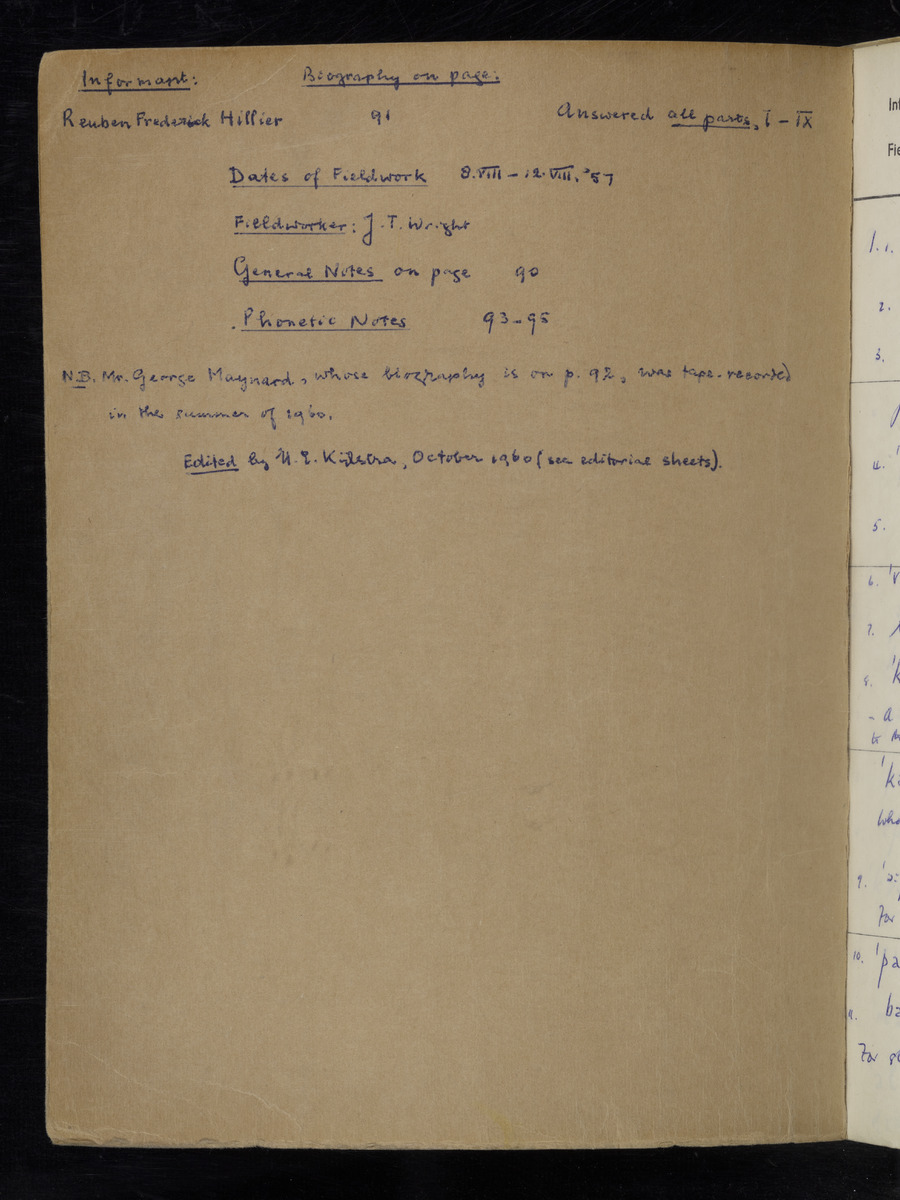 Informant: Biography on page:
Reuben Frederick Hillier 91 Answered all parts, I – IX
Dates of Fieldwork 8.VIII – 12.VIII.'57
Fieldworker: J. T. Wright
General Notes on page 90
Phonetic Notes 93-95
N.B. Mr. George Maynard, whose biography is on p. 92, was tape-recorded
in the summer of 1960.
Edited by Kijlstra, October 1960 (see editorial sheets).
Int
Fie
1. 1.
2.
3.
4.
5.
6.
7.
8.
9.
For
10. 'pa
11. ba
For